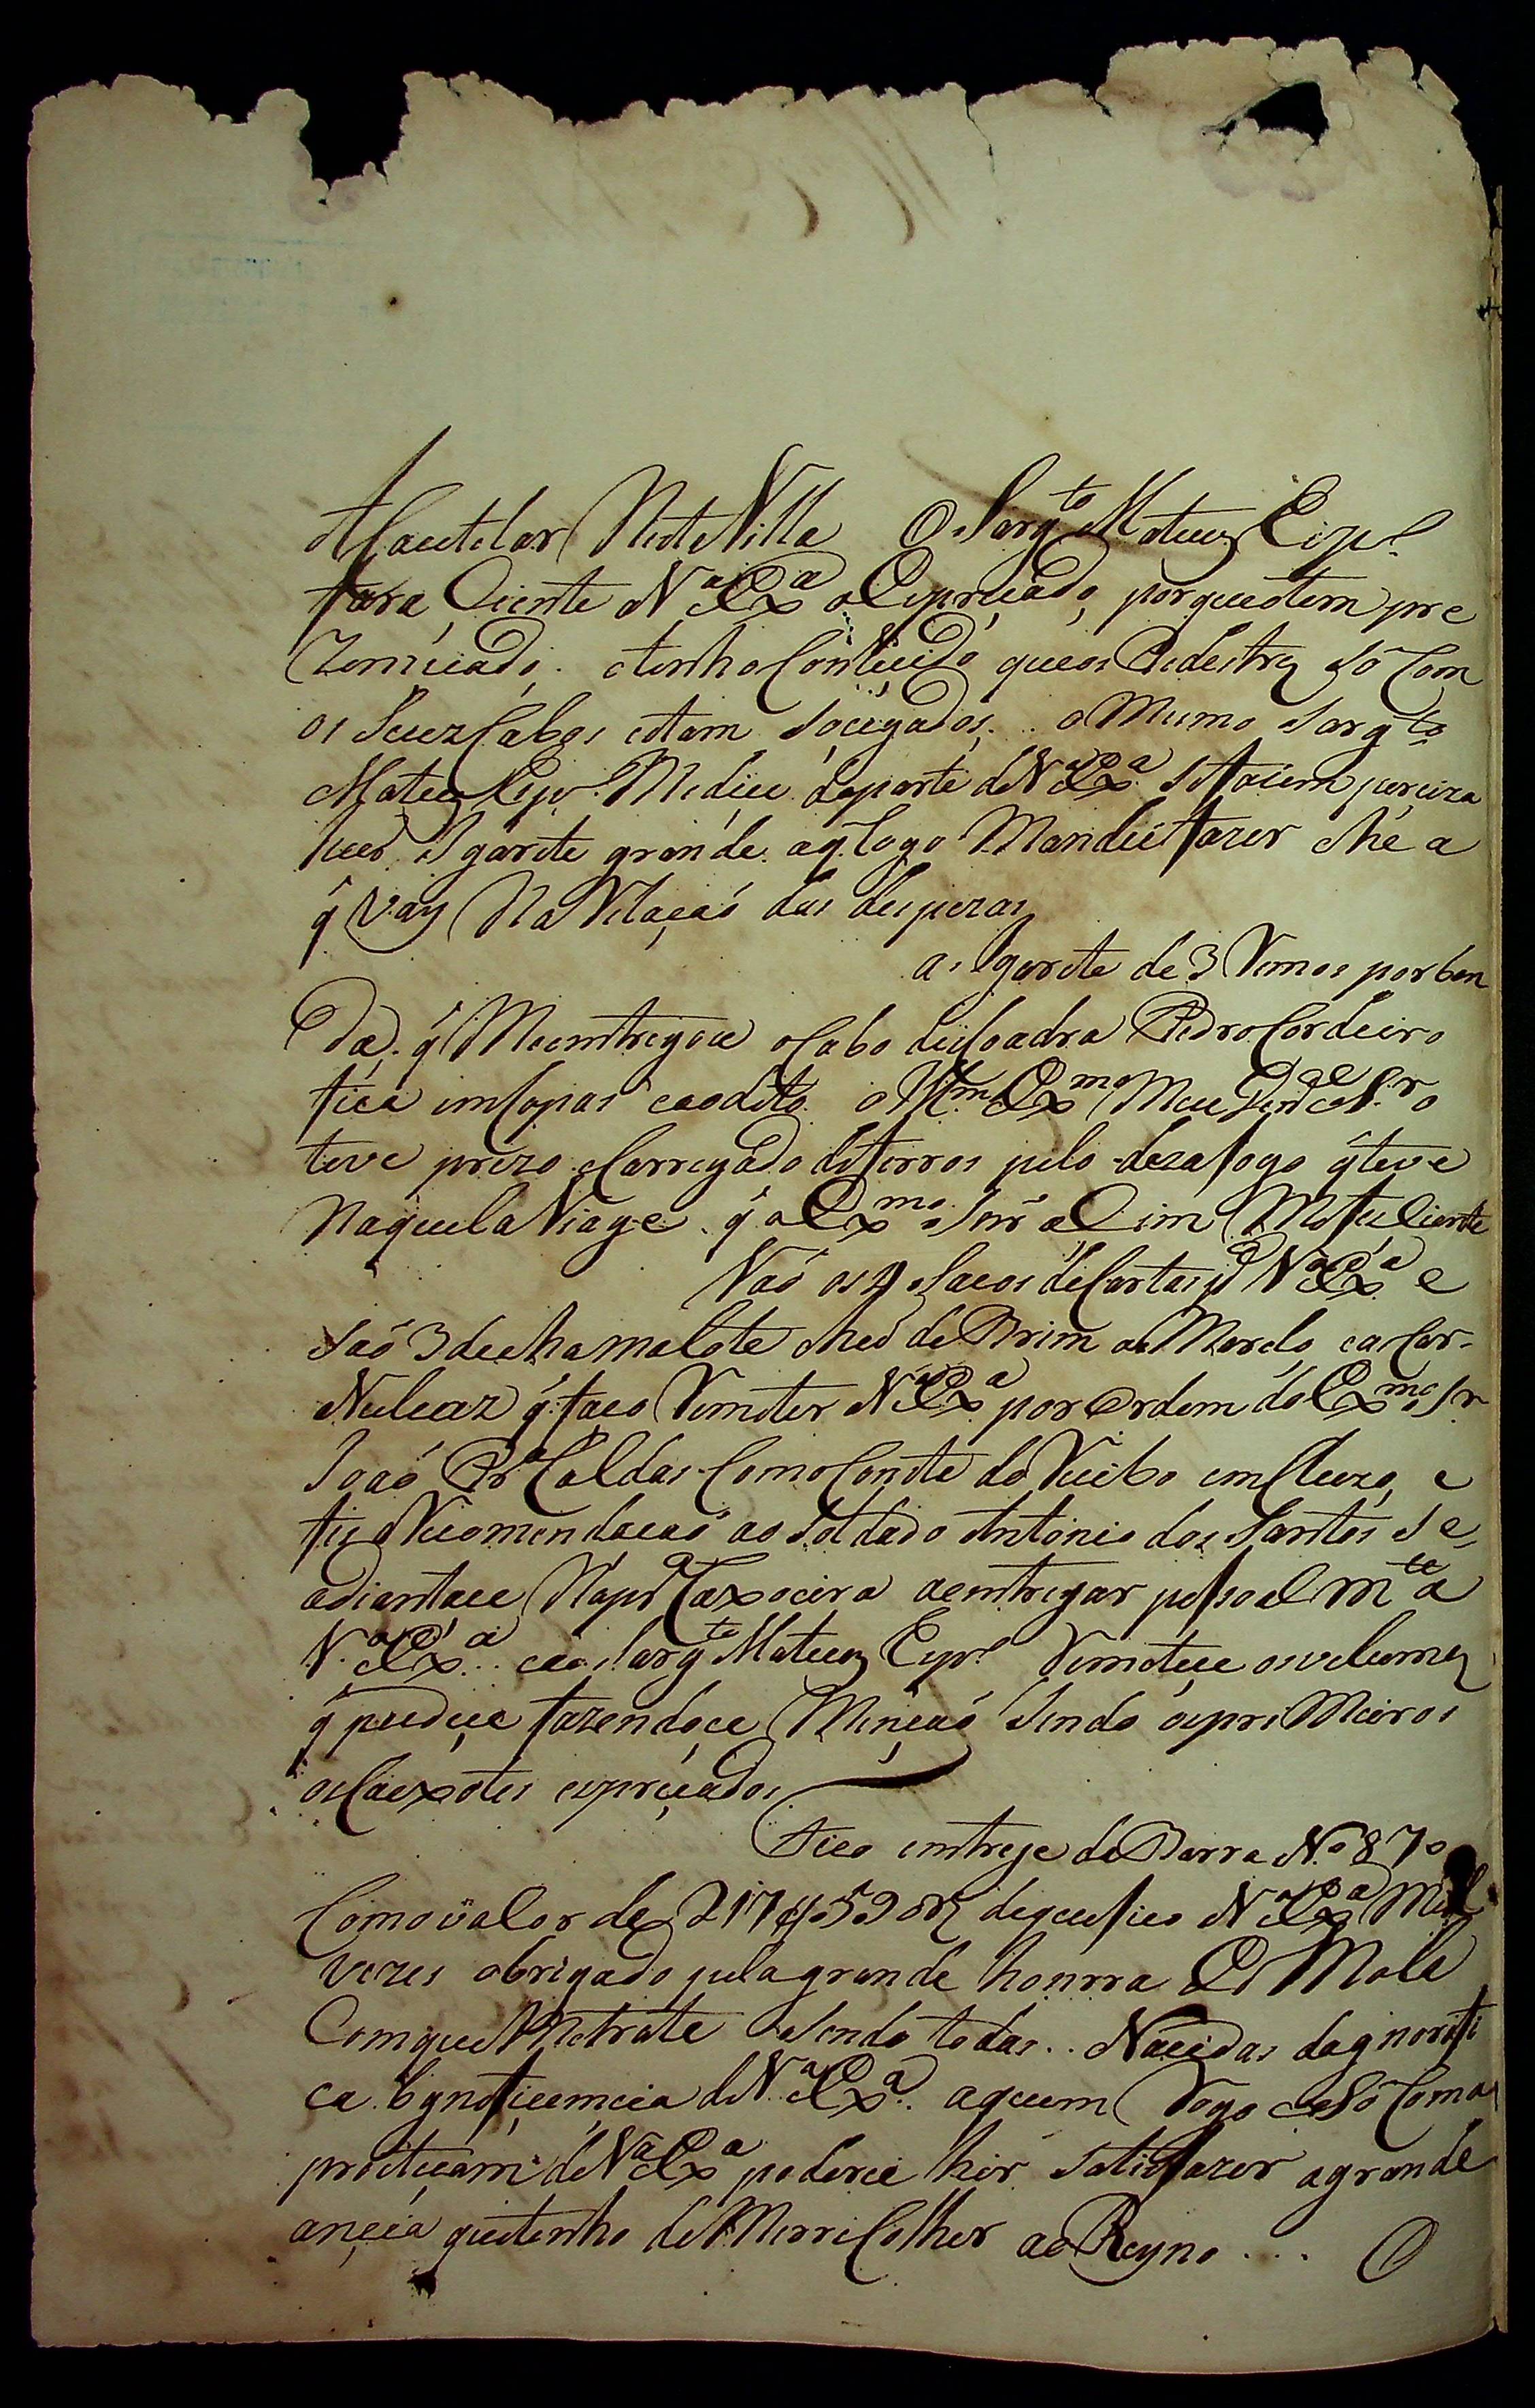 Acautelar Nesta Villa O Sarg.to Mateuz Cizp.l
fara Ciente V.a Ex.a o Espreçado, porque otem pre
zemçeado. e tenho Conheçido que os Pedestrez só Com
os Seuz Cabos estam Soçegados. o Mesmo Sarg.to
Mateuz Cizp.l Me diçe daparte de V.a Ex.a Se faziem preciza
hua Igarite grande. aq logo Mandei fazer e he a
q Vay Na Relaçaó das despezas
a Igarite de 3 Remos por ban
da. q Me entregou o Cabo de Escoadra Pedro Cordeiro
fica em Copas e ao dito. o Ill.mo Ex.mo Meu S.r o
teve prezo e Carregado de ferros pelo dezafogo q teve
Naquela Viage. q o Ex.mo Snr aSim Mo fes Ciente
Vaó os 4 Sacos de Cartas p.a V.a Ex.a e
Saó 3 de chamalote e hum de Brim a Marelo e a Car-
q faço Remeter V.a Ex.a por Ordem do Ex.mo S.r
Joaó P.ra Caldas Como Conste do Recibo emcluzo, e
fiz a Recomendacaó ao Soldado Antonio dos Santos Se
adiantace Na pr.a Caxoeira a entregar pesoalm.te a
V.a Ex.a e ao Sarg.to Mateuz Cizp.l Remetece os volumez
q pudece fazendoçe Mençaó Sendo os pri Meiros
os Caexotes espreçados
Fico entrege da Barra N.o 870
Com o valor de 217$059 rz de que fico V.a Ex.a Mil
vezes obrigado pela grande honrra
Com que Me trate Sendo todas.. Naçidas da
ca de V.a Ex.a. aquem Rogo e Só Com a
proteçam de V.a Ex.a poderei hir Satisfazer a grande
ançia que tenho de Merre Colher ao Reyno .... O